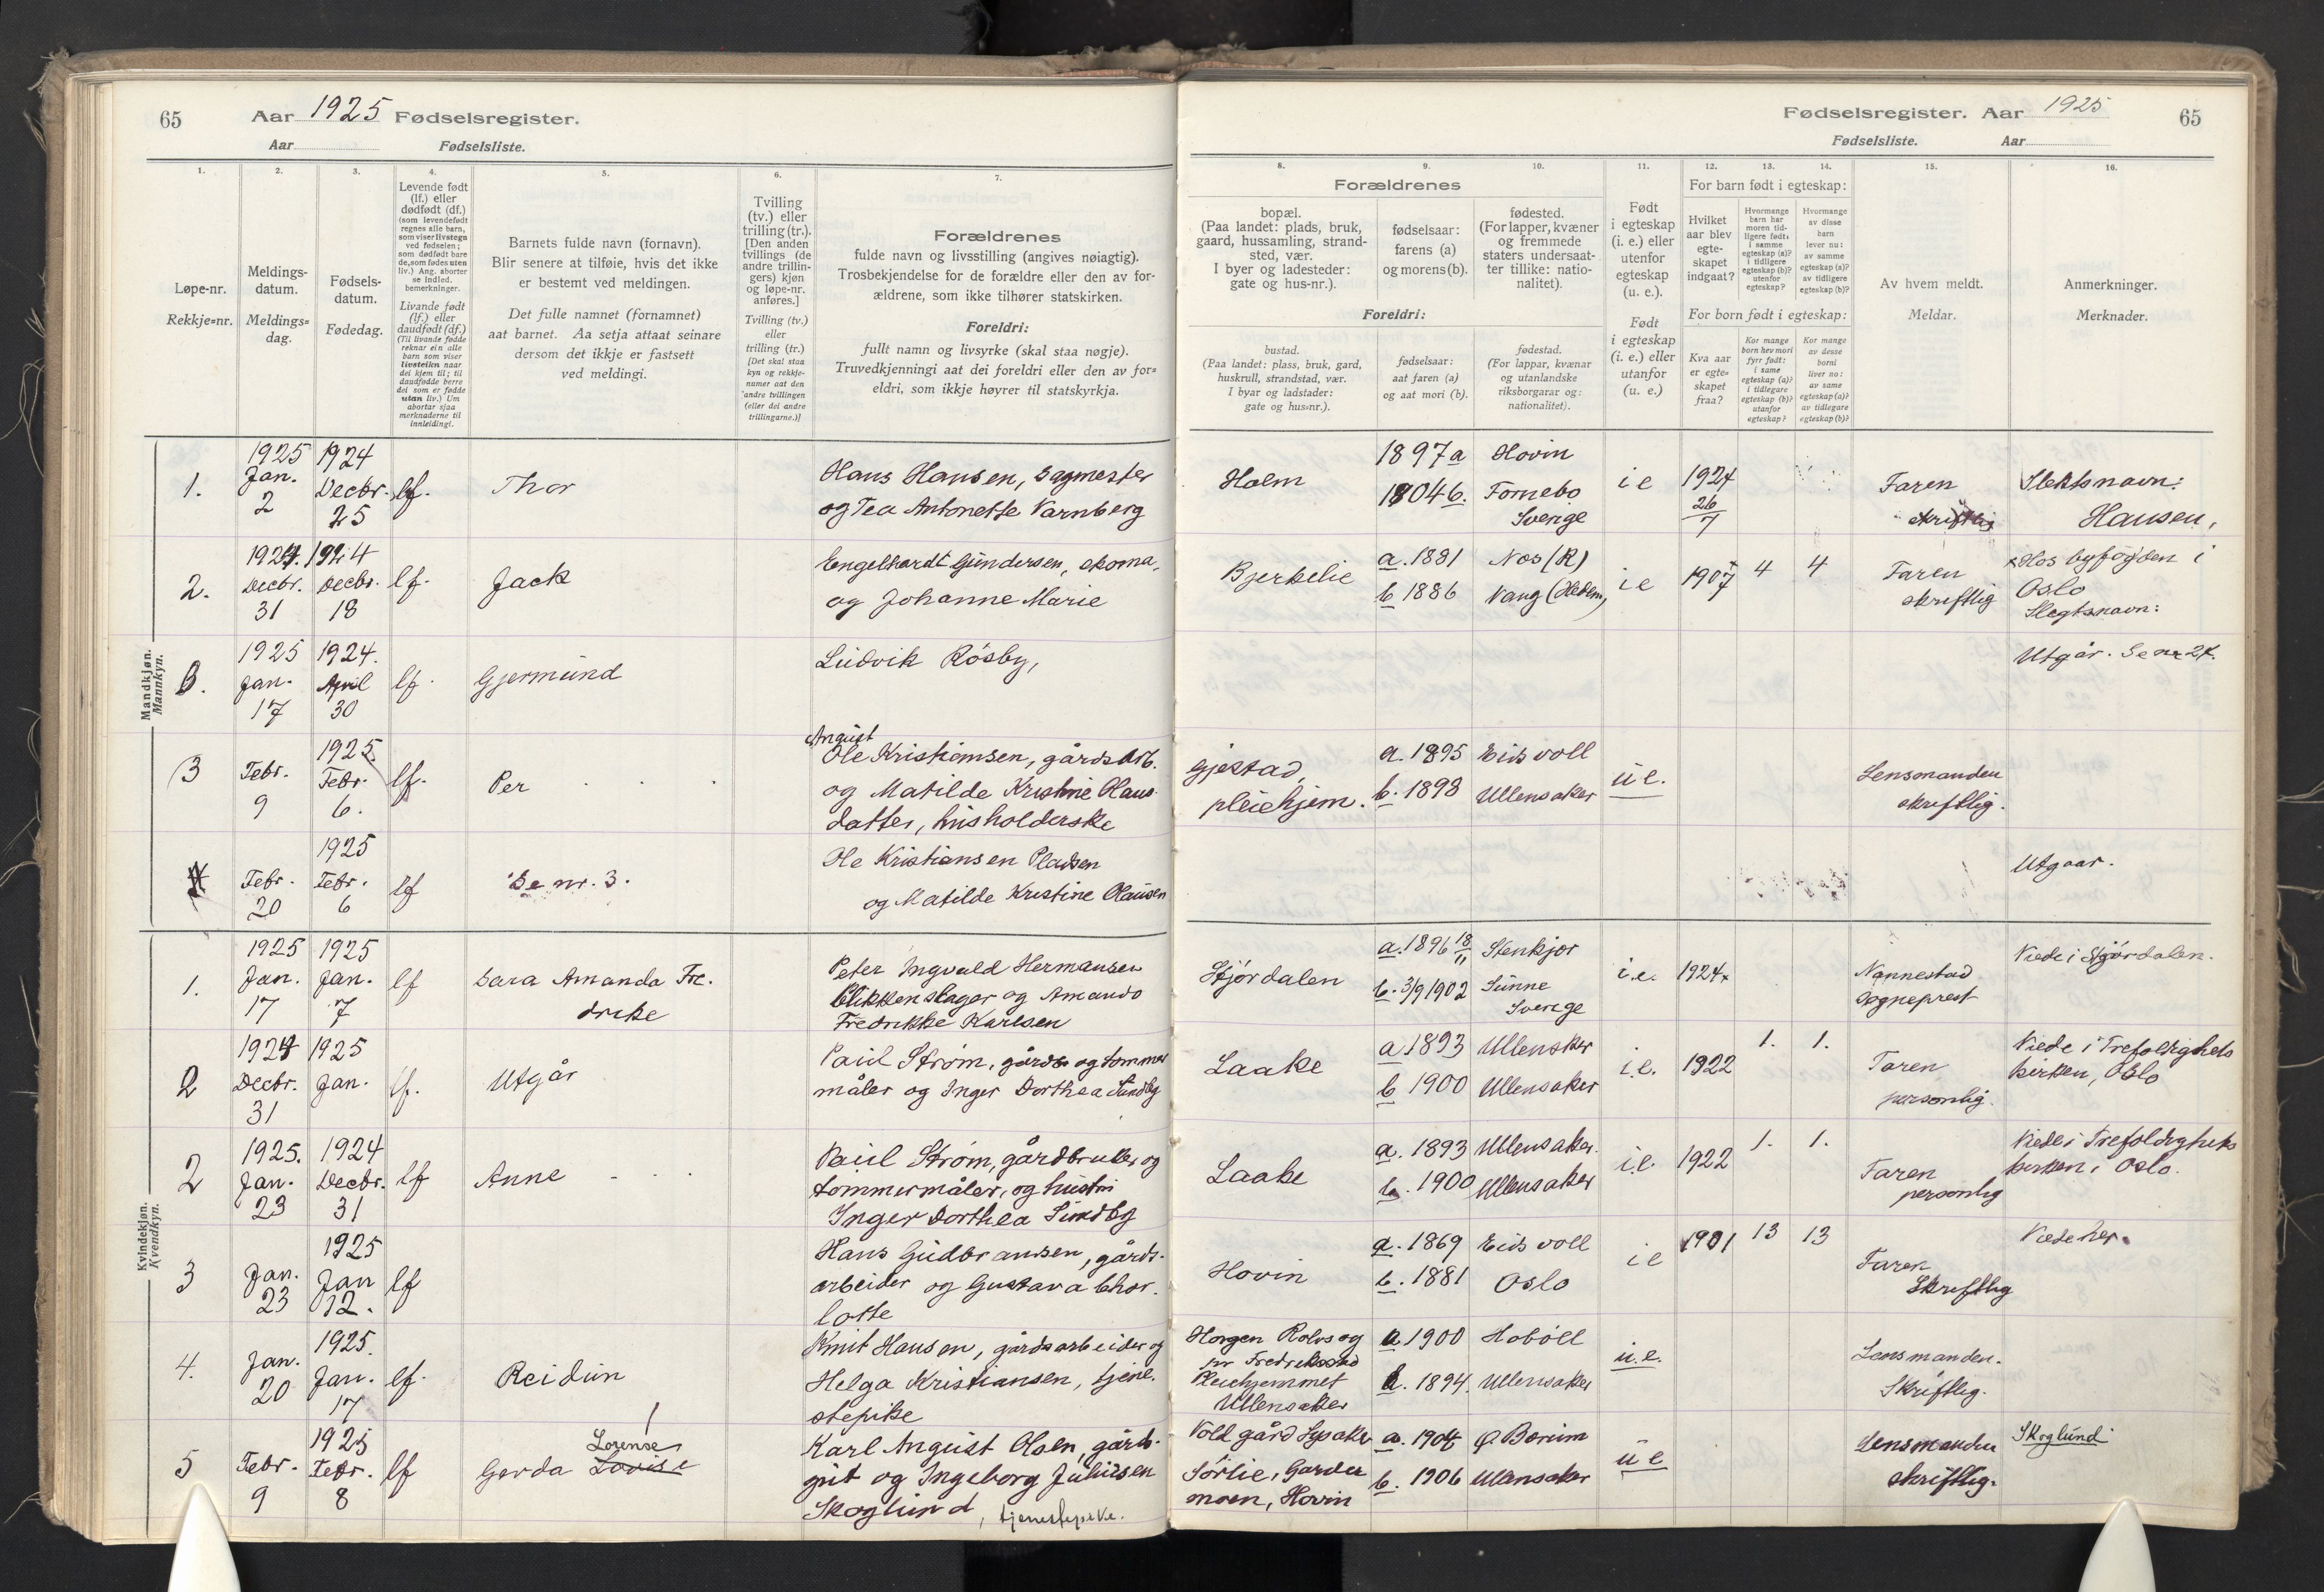 65
Aar 1925 Fødselsregister.
Aar Fødselsliste.
1.
2.
3.
4.
5.
6.
7.
Løpe-nr.
Rekkje=nr.
Meldings-
datum.
Meldings=
dag.
Fødsels-
datum.
Fødedag.
Levende født
(lf.) eller
dødfødt (df.)
(som levendefødt
regnes alle barn,
som viser livstegn
ved fødselen;
som dødfødt bare
de, som fødes uten
liv.) Ang. aborter
se indled.
bemerkninger.
Livande født
(lf.) eller
daudfødt (df.)
(Til livande fødde
reknar ein alle
barn som viser
livsteikn naar
dei kjem til; til
daudfødde berre
dei som er fødde
utan liv.) Um
abortar sjaa
merknaderne til
innleidingi.
Barnets fulde navn (fornavn).
Blir senere at tilføie, hvis det ikke
er bestemt ved meldingen.
Det fulle namnet (fornamnet)
aat barnet. Aa setja attaat seinare
dersom det ikkje er fastsett
ved meldingi.
Tvilling
(tv.) eller
trilling (tr.).
[Den anden
tvillings (de
andre trillin-
gers) kjøn
og løpe-nr.
anføres.]
Tvilling (tv.)
eller
trilling (tr.)
[Det skal staa
kyn og rekkje-
numer aat den
andre tvillingen
(eller dei andre
trillingarne.)]
Forældrenes
fulde navn og livsstilling (angives nøiagtig).
Trosbekjendelse for de forældre eller den av for-
ældrene, som ikke tilhører statskirken.
Foreldri:
fullt namn og livsyrke (skal staa nøgje).
Truvedkjenningi aat dei foreldri eller den av for=
eldri, som ikkje høyrer til statskyrkja.
Mandkjøn.
Mannkyn.
1.
1925 Jan. 2
1924 Decbr. 25
lf.
Thor
Hans Hansen, sagmester
og Tea Antonette Varnberg
2.
1924. Decbr. 31
1924 Decbr. 18
lf.
Jack
Engelhardt Gundersen, skoma.
og Johanne Marie
3.
1925 Jan. 17
1924. April 30
lf.
Gjermund
Ludvik Røsby,
3
Febr. 9
1925 Febr. 6.
lf.
Per
August
Ole Kristiansen, gårdsarb.
og Matilde Kristine Olaus
datter, husholderske
4
Febr. 20
1925 Febr. 6
lf
Se nr. 3.
Ole Kristiansen Pladsen
og Matilde Kristine Olausen
Kvindekjøn.
Kvendkyn.
1.
1925 Jan. 17
1925 Jan. 7
lf
Sara Amanda Fre.
drike
Peter Ingvald Hermansen
blikkenslager og Amanda
Fredrikke Karlsen
2
1924 Decbr. 31
1925 Jan.
lf.
Utgår
Paul Strøm, gårdb og tømmer
måler og Inger Dorthea Sundby
2
1925. Jan. 23
1924 Decbr. 31
lf
Anne
Paul Strøm, gårdbruker og
tømmermåler, og hustru
Inger Dorthea Sundby
3
Jan. 23
1925 Jan 12.
lf
Hans Gudbrandsen, gårds-
arbeider og Gustava Char.
lotte
4.
Jan. 20
1925. Jan. 17
lf.
Reidun
Knut Hansen, gårdsarbeider og
Helga Kristiansen, tjene.
stepike
5
Febr. 9
1925 Febr. 8
lf
Lorense
Gerda Lovise
Karl August Olsen, gårds-
gut og Ingeborg Juliusen
Skoglund, tjenestepike.
Fødselsregister. Aar 1925
65
Fødselsliste. Aar
8.
9.
10.
11.
12.
13.
14.
15.
16.
Forældrenes
bopæl.
(Paa landet: plads, bruk,
gaard, hussamling, strand-
sted, vær.
I byer og ladesteder:
gate og hus-nr.).
fødselsaar:
farens (a)
og morens (b).
fødested.
(For lapper, kvæner
og fremmede
staters undersaat-
ter tillike: natio-
nalitet).
Foreldri:
bustad.
(Paa landet: plass, bruk, gard,
huskrull, strandstad, vær.
I byar og ladstader:
gate og hus=nr.).
fødselsaar:
aat faren (a)
og aat mori (b).
fødestad.
(For lappar, kvænar
og utanlandske
riksborgarar og:
nationalitet).
Født
i egteskap
(i. e.) eller
utenfor
egteskap
(u. e.).
Født
i egteskap
(i. e.) eller
utanfor
egteskap
(u. e.)
For barn født i egteskap:
Hvilket
aar blev
egte-
skapet
indgaat?
Hvormange
barn har
moren tid-
ligere født:
i samme
egteskap (a)?
i tidligere
egteskap (b)?
utenfor
egteskap?
Hvormange
av disse
barn
lever nu:
av samme
egteskap (a)?
av tidligere
egteskap (b)?
For born født i egteskap:
Kva aar
er egte=
skapet
fraa?
Kor mange
born hev mori
fyrr født:
i same
egteskap (a)?
i tidlegare
egteskap (b)?
utanfor
egteskap?
Kor mange
av desse
borni
liver no:
av same
egteskap (a)?
av tidlegare
egteskap (b)?
Av hvem meldt.
Meldar.
Anmerkninger.
Merknader.
Holm
1897 a Hovin
1904 b. Fornebo
Sverige
i e
1924
26
7
Faren
skriftlig
Slektsnavn:
Hansen,
Bjerkelie
a. 1881 Nes (R)
b 1886 Vang (Hedem)
i e
1907
4
4
Faren
skriftlig
Hos byfogden i
Oslo
Slegtsnavn:
Utgår. Se nr 24.
Gjestad,
pleiehjem.
a. 1895 Eidsvoll
b. 1898 Ullensaker
u e.
Lensmanden
skriftlig.
Utgaar.
Stjørdalen
a. 1896 18/11 Stenkjær
b. 3/9 1902 Sunne
Sverige
i.e.
1924
Nannestad
Sogneprest
Viede i Stjørdalen.
Laake
a 1893 Ullensaker
b 1900 Ullensaker
i.e.
1922
1.
1.
Faren
personlig.
Viede i Trefoldigheds
kirken, Oslo
Laake
a. 1893 Ullensaker.
b. 1900 Ullensaker
i.e.
1922
1.
1.
Faren
personlig
Viede i Trefoldigheds
kirken i Oslo.
Hovin
a. 1869 Eidsvoll
b. 1881 Oslo
i e
1901
13
13
Faren
Skriftlig
Viede her.
Horgen Rolvsog
pr Fredriksstad
Pleiehjemmet
Ullensaker
a 1900 Hobøl
b. 1894. Ullensaker
u.e.
Lensmanden.
Skriftlig.
Vold gård Lysaker
Sørlie, Garder
moen, Hovin
a. 1904 Ø. Bærum
b. 1906 Ullensaker
u e
Lensmanden
skriftlig.
Skoglund